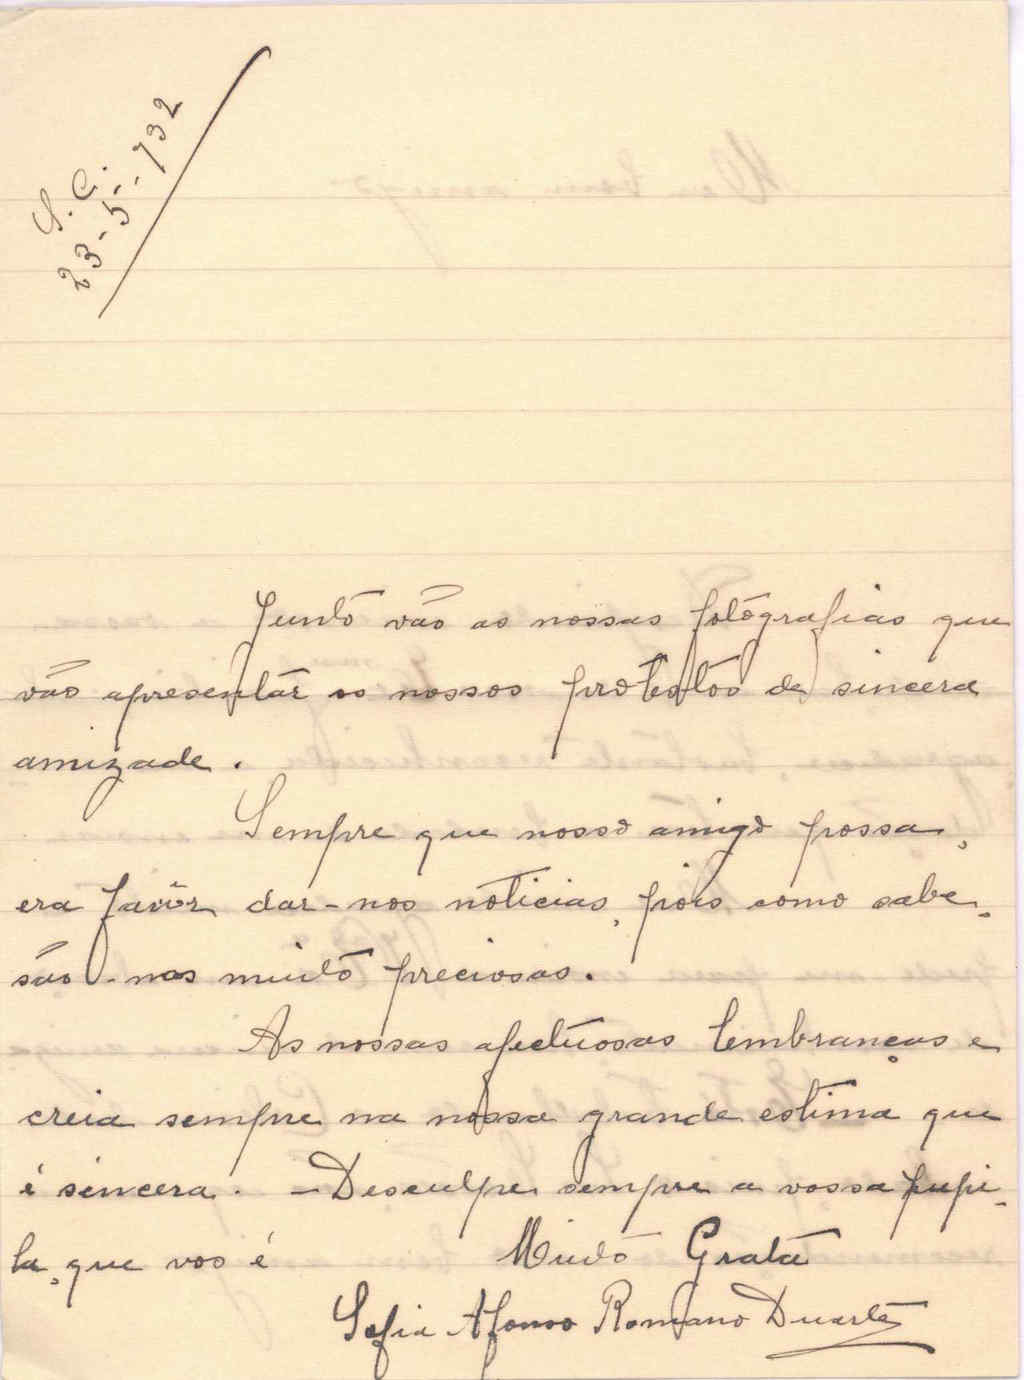 S. C.
23-5-932
Junto vão as nossas fotografias que
vão apresentar os nossos protestos de sincera
amizade.
Sempre que nosso amigo possa,
era favôr dar-nos noticias, pois como sabe,
são-nos muito preciosas.
As nossas afectuosas lembranças e
creia sempre na nossa grande estima que
é sincera. - Desculpe sempre a vossa pupi-
la, que vos é Muito Grata
Sofia Afonso Romano Duarte